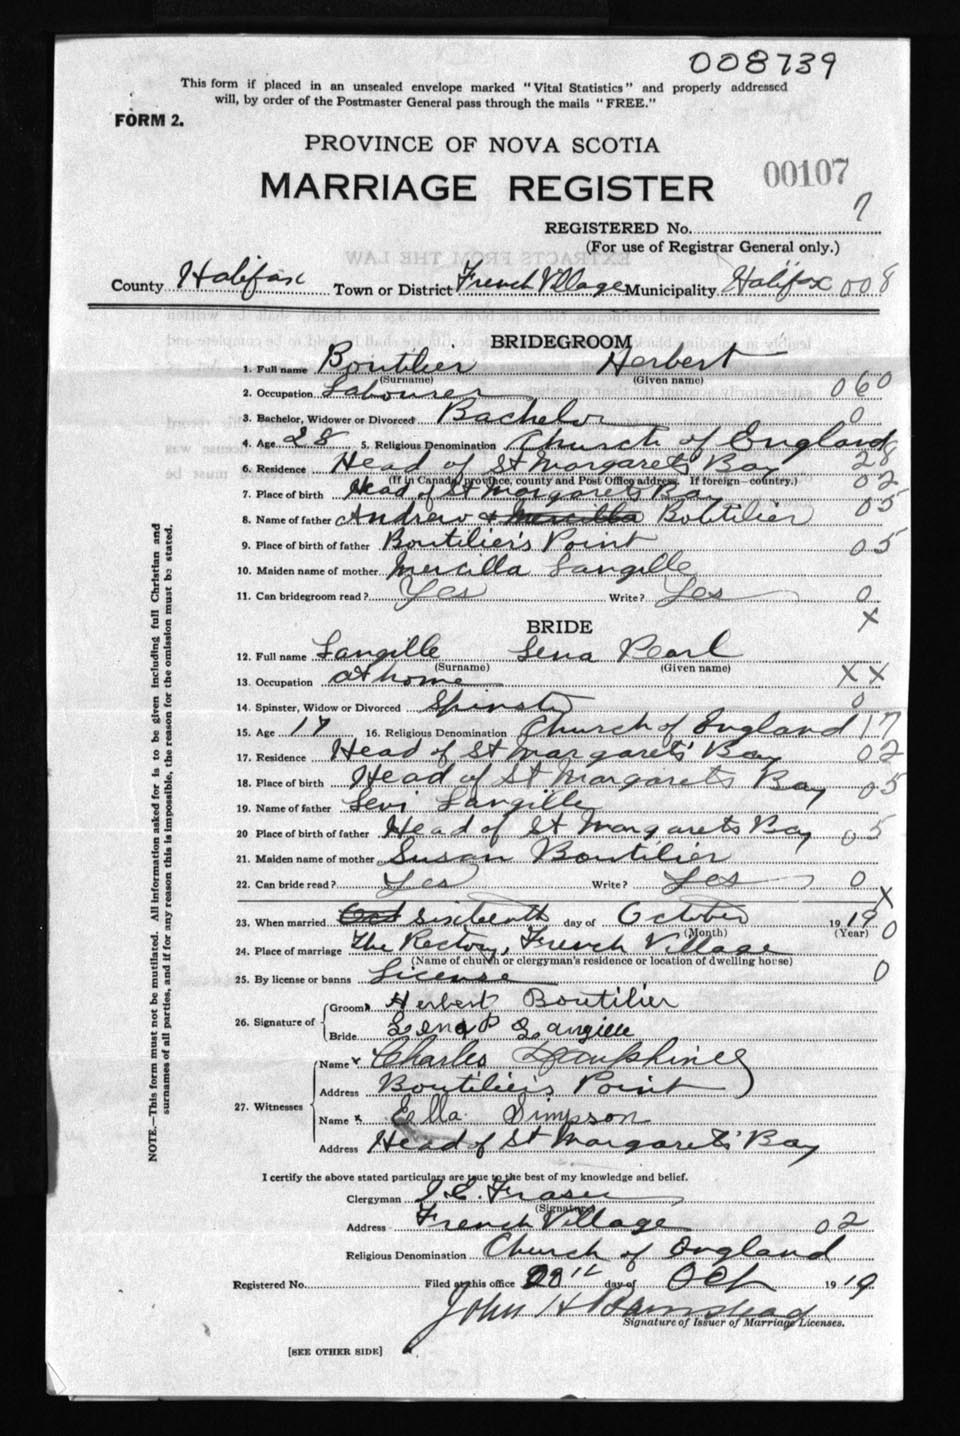 008739
This form if placed in an unsealed envelope marked "Vital Statistics" and properly addressed
will, by order of the Postmaster General pass through the mails "FREE."
FORM 2.
PROVINCE OF NOVA SCOTIA
MARRIAGE REGISTER
00107
7
REGISTERED No.
(For use of Registrar General only.)
County Halifax Town or District French Village Municipality Halifax 008
BRIDEGROOM
1. Full name Boutilier Herbert
(Surname) (Given name)
2. Occupation Labourer 060
3. Bachelor, Widower or Divorced Bachelor 0
4. Age 28 5. Religious Denomination Church of England
6. Residence Head of St Margarets Bay 28
(If in Canada, province, county and Post Office address. If foreign—country.) 02
7. Place of birth Head of St Margarets Bay
8. Name of father Andrew & Mercilla Boutilier 05
9. Place of birth of father Boutilier's Point 05
10. Maiden name of mother Mercilla Langille
11. Can bridegroom read? Yes Write? Yes 0
X
BRIDE
12. Full name Langille Lena Pearl
(Surname) (Given name)
13. Occupation at home XX
14. Spinster, Widow or Divorced Spinster 0
15. Age 17 16. Religious Denomination Church of England 17
17. Residence Head of St Margarets' Bay 02
18. Place of birth Head of St Margarets Bay 05
19. Name of father Levi Langille
20 Place of birth of father Head of St Margarets Bay 05
21. Maiden name of mother Susan Boutilier
22. Can bride read? Yes Write? Yes 0
X
23. When married Oct Sixteenth day of October 1919 0
(Month) (Year)
24. Place of marriage The Rectory, French Village
(Name of church or clergyman's residence or location of dwelling house)
25. By license or banns License 0
26. Signature of
Groom Herbert Boutilier
Bride Lena P Langille
27. Witnesses
Name x Charles Dauphinee
Address Boutilier's Point
Name x Ella Simpson
Address Head of St Margarets' Bay
I certify the above stated particulars are true to the best of my knowledge and belief.
Clergyman J.E. Fraser
(Signature)
Address French Village 02
Religious Denomination Church of England
Registered No. Filed at this office 20th day of Oct 1919
John H Barnstead
Signature of Issuer of Marriage Licenses.
[SEE OTHER SIDE]
NOTE.—This form must not be mutilated. All information asked for is to be given including full Christian and
surnames of all parties, and if for any reason this is impossible, the reason for the omission must be stated.